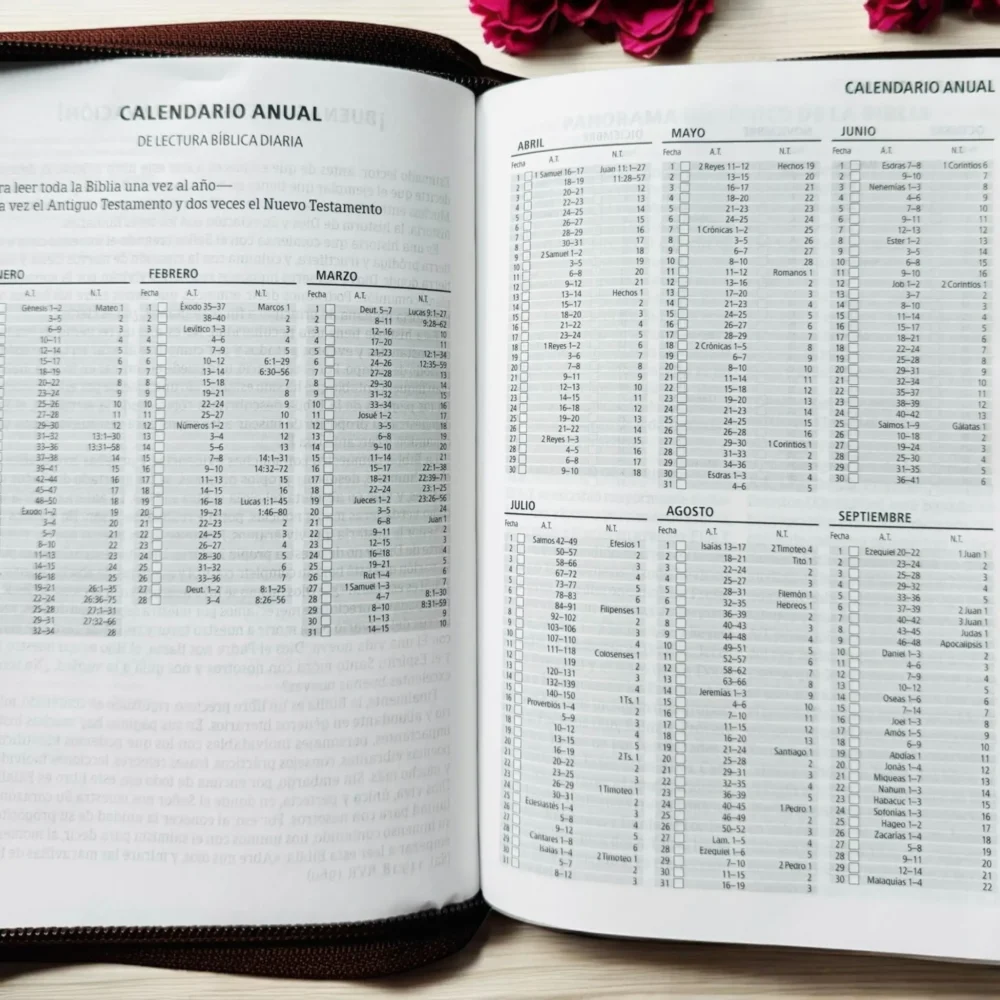 CALENDARIO ANUAL
DE LECTURA BÍBLICA DIARIA
ra leer toda la Biblia una vez al año—
a vez el Antiguo Testamento y dos veces el Nuevo Testamento
NERO
A.T. N.T.
Génesis 1–2 Mateo 1
3–5 2
6–9 3
10–11 4
12–14 5
15–17 6
18–19 7
20–22 8
23–24 9
25–26 10
27–28 11
29–30 12
31–32 13:1–30
33–36 13:31–58
37–38 14
39–41 15
42–44 16
45–47 17
48–50 18
Éxodo 1–2 19
3–4 20
5–7 21
8–10 22
11–13 23
14–15 24
16–18 25
19–21 26:1–35
22–24 26:36–75
25–28 27:1–31
29–31 27:32–66
32–34 28
FEBRERO
Fecha A.T. N.T.
1 Éxodo 35–37 Marcos 1
2 38–40 2
3 Levítico 1–3 3
4 4–6 4
5 7–9 5
6 10–12 6:1–29
7 13–14 6:30–56
8 15–18 7
9 19–21 8
10 22–24 9
11 25–27 10
12 Números 1–2 11
13 3–4 12
14 5–6 13
15 7–8 14:1–31
16 9–10 14:32–72
17 11–13 15
18 14–15 16
19 16–18 Lucas 1:1–45
20 19–21 1:46–80
21 22–23 2
22 24–25 3
23 26–27 4
24 28–30 5
25 31–32 6
26 33–36 7
27 Deut. 1–2 8:1–25
28 3–4 8:26–56
MARZO
Fecha A.T. N.T.
1 Deut. 5–7 Lucas 9:1–27
2 8–11 9:28–62
3 12–16 10
4 17–20 11
5 21–23 12:1–34
6 24–26 12:35–59
7 27–28 13
8 29–30 14
9 31–32 15
10 33–34 16
11 Josué 1–2 17
12 3–5 18
13 6–8 19
14 9–10 20
15 11–14 21
16 15–17 22:1–38
17 18–21 22:39–71
18 22–24 23:1–25
19 Jueces 1–2 23:26–56
20 3–5 24
21 6–8 Juan 1
22 9–11 2
23 12–15 3
24 16–18 4
25 19–21 5
26 Rut 1–4 6
27 1 Samuel 1–3 7
28 4–7 8:1–30
29 8–10 8:31–59
30 11–13 9
31 14–15 10
CALENDARIO ANUAL
ABRIL
Fecha A.T. N.T.
1 1 Samuel 16–17 Juan 11:1–27
2 18–19 11:28–57
3 20–21 12
4 22–23 13
5 24–25 14
6 26–27 15
7 28–29 16
8 30–31 17
9 2 Samuel 1–2 18
10 3–5 19
11 6–8 20
12 9–12 21
13 13–14 Hechos 1
14 15–17 2
15 18–20 3
16 21–22 4
17 23–24 5
18 1 Reyes 1–2 6
19 3–6 7
20 7–8 8
21 9–11 9
22 12–13 10
23 14–15 11
24 16–18 12
25 19–20 13
26 21–22 14
27 2 Reyes 1–3 15
28 4–5 16
29 6–8 17
30 9–10 18
MAYO
Fecha A.T. N.T.
1 2 Reyes 11–12 Hechos 19
2 13–15 20
3 16–17 21
4 18–20 22
5 21–23 23
6 24–25 24
7 1 Crónicas 1–2 25
8 3–5 26
9 6–7 27
10 8–10 28
11 11–12 Romanos 1
12 13–16 2
13 17–20 3
14 21–23 4
15 24–25 5
16 26–27 6
17 28–29 7
18 2 Crónicas 1–5 8
19 6–7 9
20 8–10 10
21 11–14 11
22 15–18 12
23 19–20 13
24 21–23 14
25 24–25 15
26 26–28 16
27 29–30 1 Corintios 1
28 31–33 2
29 34–36 3
30 Esdras 1–3 4
31 4–6 5
JUNIO
Fecha A.T. N.T.
1 Esdras 7–8 1 Corintios 6
2 9–10 7
3 Nehemías 1–3 8
4 4–6 9
5 7–8 10
6 9–11 11
7 12–13 12
8 Ester 1–2 13
9 3–5 14
10 6–8 15
11 9–10 16
12 Job 1–2 2 Corintios 1
13 3–7 2
14 8–10 3
15 11–14 4
16 15–17 5
17 18–21 6
18 22–24 7
19 25–28 8
20 29–31 9
21 32–34 10
22 35–37 11
23 38–39 12
24 40–42 13
25 Salmos 1–9 Gálatas 1
26 10–18 2
27 19–24 3
28 25–30 4
29 31–35 5
30 36–41 6
JULIO
Fecha A.T. N.T.
1 Salmos 42–49 Efesios 1
2 50–57 2
3 58–66 3
4 67–72 4
5 73–77 5
6 78–83 6
7 84–91 Filipenses 1
8 92–102 2
9 103–106 3
10 107–110 4
11 111–118 Colosenses 1
12 119 2
13 120–131 3
14 132–139 4
15 140–150 1 Ts. 1
16 Proverbios 1–4 2
17 5–9 3
18 10–12 4
19 13–15 5
20 16–19 2 Ts. 1
21 20–22 2
22 23–25 3
23 26–29 1 Timoteo 1
24 30–31 2
25 Eclesiastés 1–4 3
26 5–8 4
27 9–12 5
28 Cantares 1–8 6
29 Isaías 1–4 2 Timoteo 1
30 5–7 2
31 8–12 3
AGOSTO
Fecha A.T. N.T.
1 Isaías 13–17 2 Timoteo 4
2 18–21 Tito 1
3 22–24 2
4 25–27 3
5 28–31 Filemón 1
6 32–35 Hebreos 1
7 36–39 2
8 40–43 3
9 44–48 4
10 49–51 5
11 52–57 6
12 58–62 7
13 63–66 8
14 Jeremías 1–3 9
15 4–6 10
16 7–10 11
17 11–15 12
18 16–20 13
19 21–24 Santiago 1
20 25–28 2
21 29–31 3
22 32–35 4
23 36–39 5
24 40–45 1 Pedro 1
25 46–49 2
26 50–52 3
27 Lam. 1–5 4
28 Ezequiel 1–6 5
29 7–10 2 Pedro 1
30 11–15 2
31 16–19 3
SEPTIEMBRE
Fecha A.T. N.T.
1 Ezequiel 20–22 1 Juan 1
2 23–24 2
3 25–28 3
4 29–32 4
5 33–36 5
6 37–39 2 Juan 1
7 40–42 3 Juan 1
8 43–45 Judas 1
9 46–48 Apocalipsis 1
10 Daniel 1–3 2
11 4–6 3
12 7–9 4
13 10–12 5
14 Oseas 1–6 6
15 7–14 7
16 Joel 1–3 8
17 Amós 1–5 9
18 6–9 10
19 Abdías 1 11
20 Jonás 1–4 12
21 Miqueas 1–7 13
22 Nahum 1–3 14
23 Habacuc 1–3 15
24 Sofonías 1–3 16
25 Hageo 1–2 17
26 Zacarías 1–4 18
27 5–8 19
28 9–11 20
29 12–14 21
30 Malaquías 1–4 22